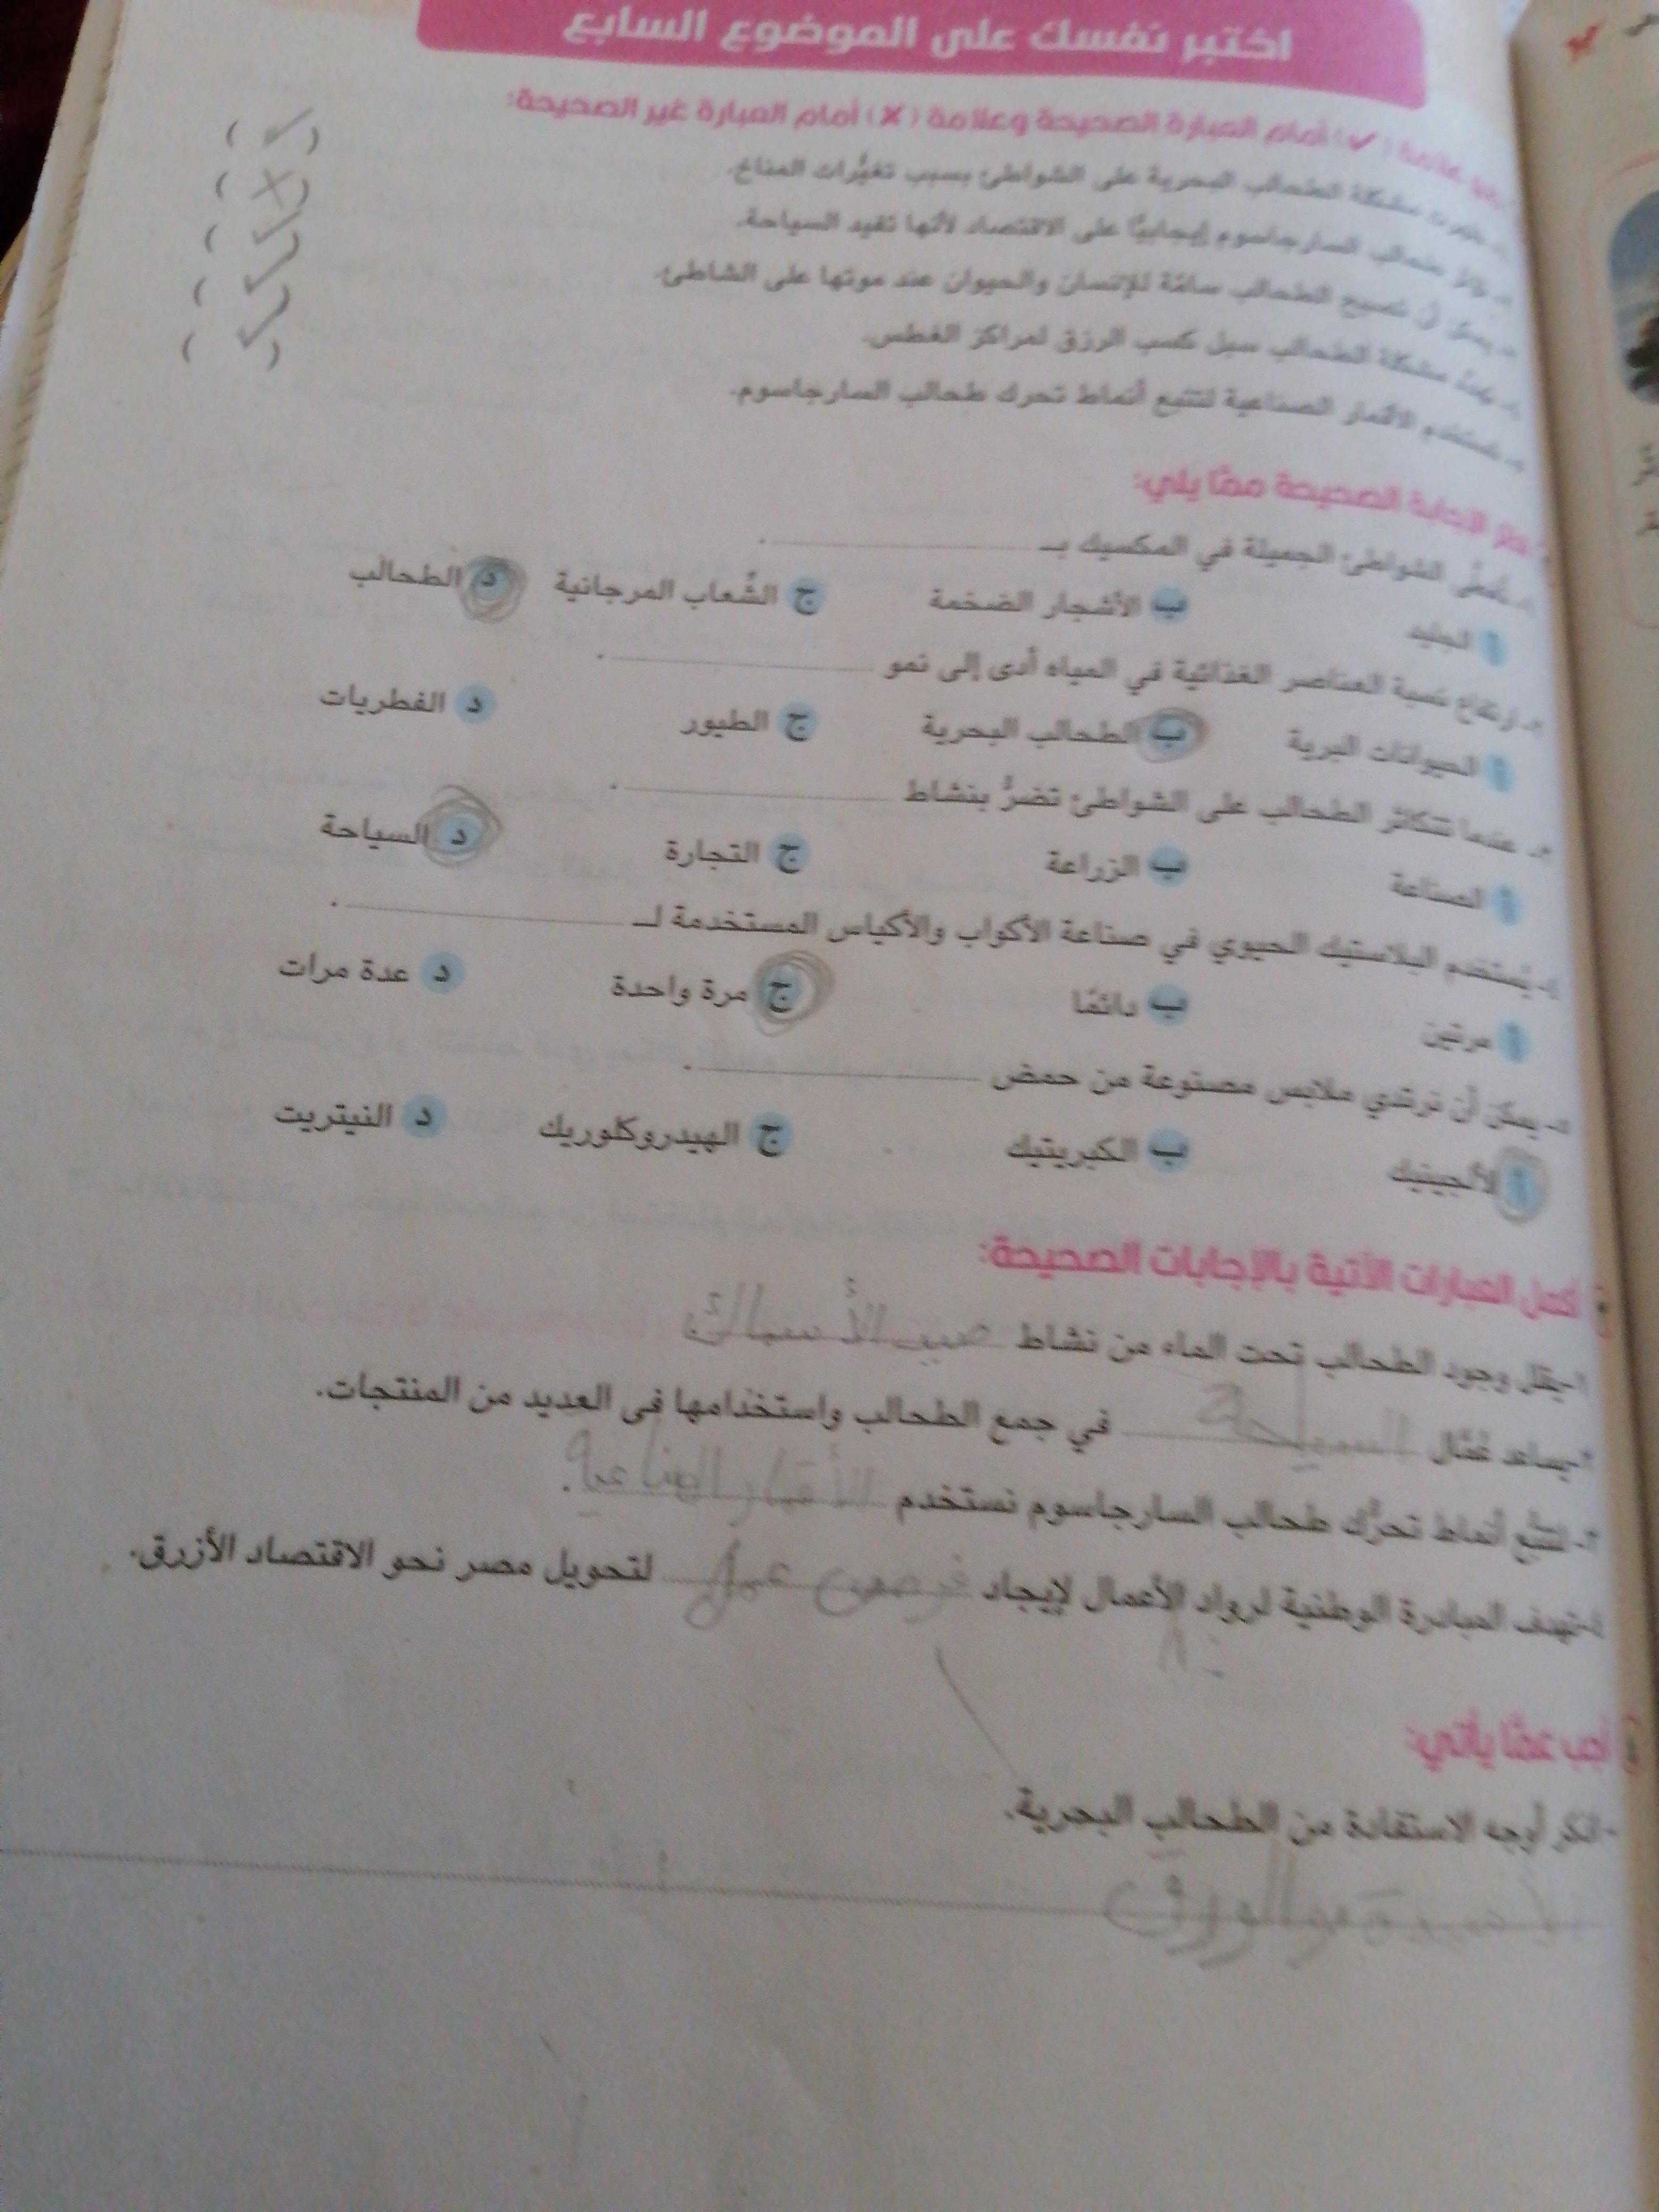 اختبر نفسك على الموضوع السابع
علامة (✓) أمام العبارة الصحيحة وعلامة (✗) أمام العبارة غير الصحيحة:
مشكلة الطحالب البحرية على الشواطئ بسبب تغيُّرات المناخ. (✓)
طحالب السارجاسوم إيجابيًّا على الاقتصاد لأنها تفيد السياحة. (✗)
٣- يمكن أن تصبح الطحالب سامَّة للإنسان والحيوان عند موتها على الشاطئ. (✓)
مشكلة الطحالب سبل كسب الرزق لمراكز الغطس. (✓)
٥- تستخدم الأقمار الصناعية لتتبع أنماط تحرك طحالب السارجاسوم. (✓)
اختر الإجابة الصحيحة ممَّا يلي:
١- تُغطَّى الشواطئ الجميلة في المكسيك بـ .
أ الجليد ب الأشجار الضخمة ج الشِّعاب المرجانية د الطحالب
٢- ارتفاع نسبة العناصر الغذائية في المياه أدى إلى نمو .
أ الحيوانات البرية ب الطحالب البحرية ج الطيور د الفطريات
٣- عندما تتكاثر الطحالب على الشواطئ تضرُّ بنشاط .
أ الصناعة ب الزراعة ج التجارة د السياحة
٤- يُستخدم البلاستيك الحيوي في صناعة الأكواب والأكياس المستخدمة لـ .
أ مرتين ب دائمًا ج مرة واحدة د عدة مرات
٥- يمكن أن نرتدي ملابس مصنوعة من حمض .
أ الألجينيك ب الكبريتيك ج الهيدروكلوريك د النيتريت
أكمل العبارات الآتية بالإجابات الصحيحة:
١- يقلل وجود الطحالب تحت الماء من نشاط صيد الأسماك
٢- يساعد عُمَّال السياحة في جمع الطحالب واستخدامها فى العديد من المنتجات.
٣- لتتبُّع أنماط تحرُّك طحالب السارجاسوم نستخدم الأقمار الصناعية.
٤- تهدف المبادرة الوطنية لرواد الأعمال لإيجاد فرص عمل لتحويل مصر نحو الاقتصاد الأزرق.
٤ أجب عمَّا يأتي:
- اذكر أوجه الاستفادة من الطحالب البحرية.
والورق